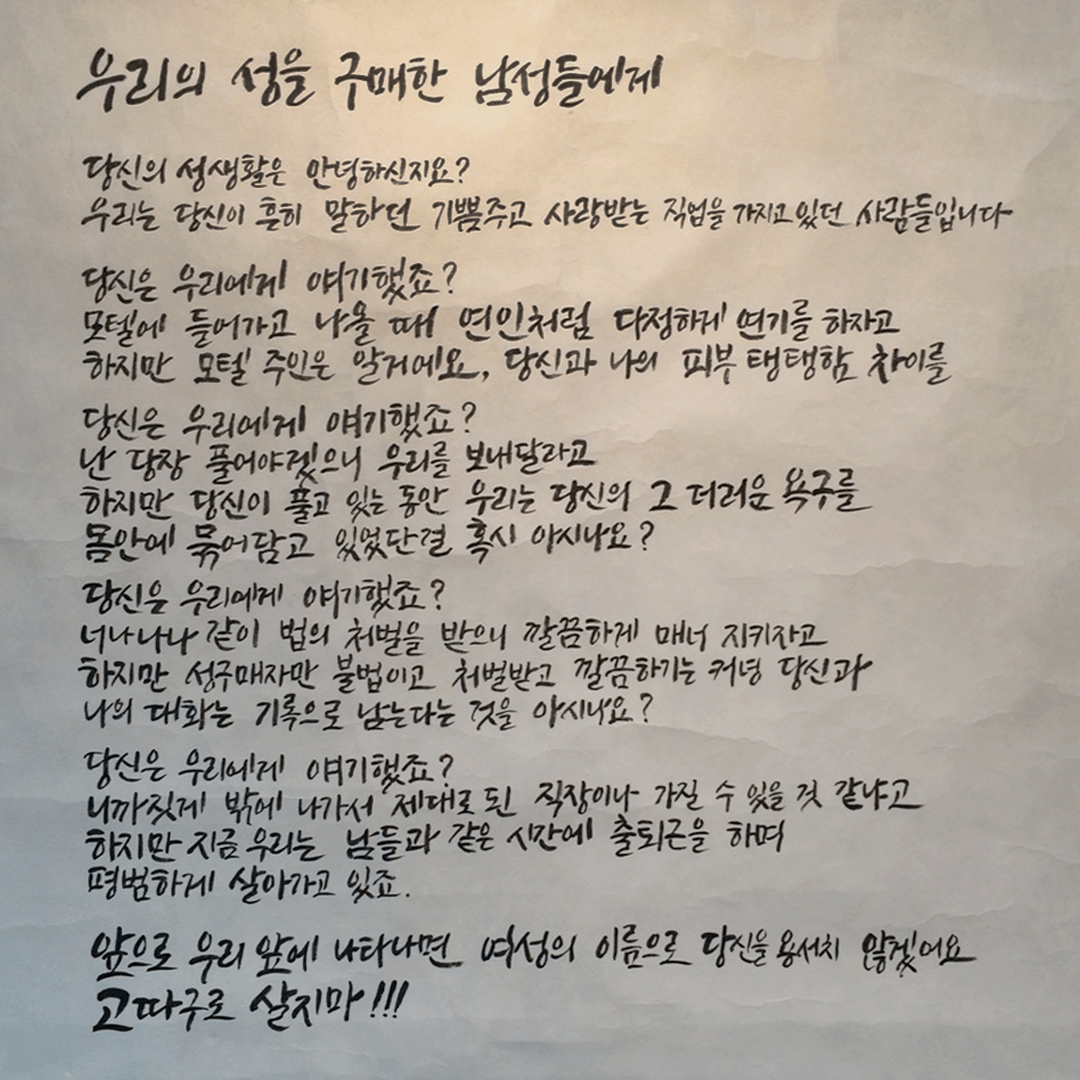 우리의 성을 구매한 남성들에게
당신의 성생활은 안녕하신지요?
우리는 당신이 흔히 말하던 기쁨주고 사랑받는 직업을 가지고 있던 사람들입니다
당신은 우리에게 얘기했죠?
모텔에 들어가고 나올 때 연인처럼 다정하게 연기를 하자고
하지만 모텔 주인은 알거에요, 당신과 나의 피부 탱탱함 차이를
당신은 우리에게 얘기했죠?
난 당장 풀어야겠으니 우리를 보내달라고
하지만 당신이 풀고 있는 동안 우리는 당신의 그 더러운 욕구를
몸안에 묶어담고 있었단걸 혹시 아시나요?
당신은 우리에게 얘기했죠?
너나나나 같이 법의 처벌을 받으니 깔끔하게 매너 지키자고
하지만 성구매자만 불법이고 처벌받고 깔끔하기는 커녕 당신과
나의 대화는 기록으로 남는다는 것을 아시나요?
당신은 우리에게 얘기했죠?
니까짓게 밖에 나가서 제대로 된 직장이나 가질 수 있을 것 같냐고
하지만 지금 우리는 남들과 같은 시간에 출퇴근을 하며
평범하게 살아가고 있죠.
앞으로 우리 앞에 나타나면 여성의 이름으로 당신을 용서치 않겠어요
고따구로 살지마!!!